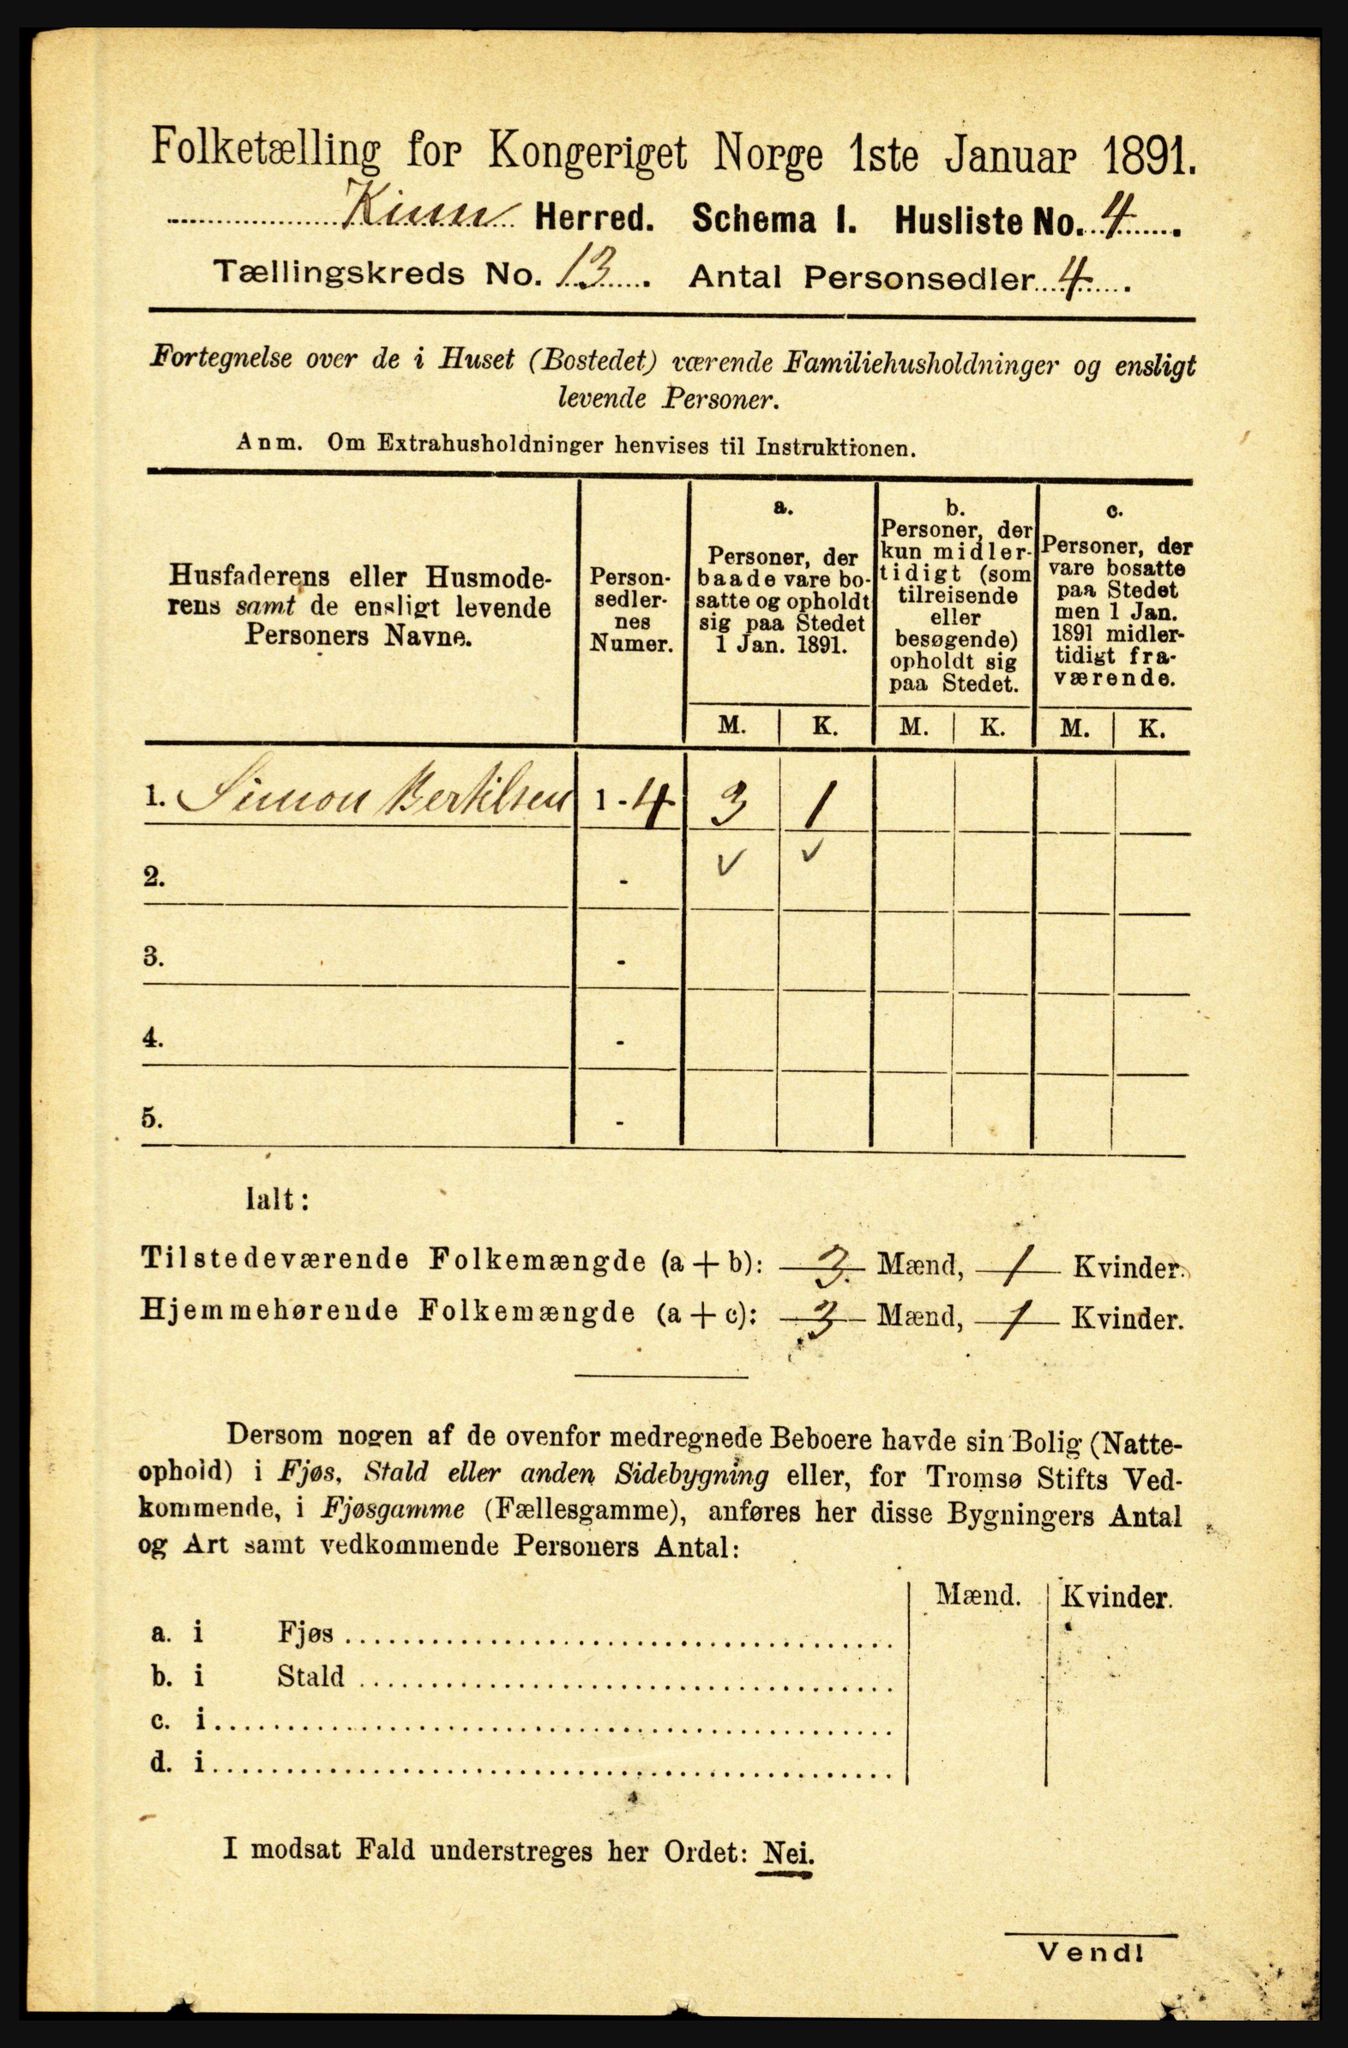 Folketælling for Kongeriget Norge 1ste Januar 1891.
Kinn Herred. Schema I. Husliste No. 4.
Tællingskreds No. 13. Antal Personsedler 4.
Fortegnelse over de i Huset (Bostedet) værende Familiehusholdninger og ensligt
levende Personer.
Anm. Om Extrahusholdninger henvises til Instruktionen.
Husfaderens eller Husmode-
rens samt de ensligt levende
Personers Navne.
Person-
sedler-
nes
Numer.
a.
Personer, der
baade vare bo-
satte og opholdt
sig paa Stedet
1 Jan. 1891.
b.
Personer, der
kun midler-
tidigt (som
tilreisende
eller
besøgende)
opholdt sig
paa Stedet.
c.
Personer, der
vare bosatte
paa Stedet
men 1 Jan.
1891 midler-
tidigt fra-
værende.
M. K. M. K. M. K.
1. Simon Bertilsen 1 - 4 3 1
2. - ✓ ✓
3. -
4. -
5. -
Ialt:
Tilstedeværende Folkemængde (a + b): 3. Mænd, 1 Kvinder.
Hjemmehørende Folkemængde (a + c): 3 Mænd, 1 Kvinder.
Dersom nogen af de ovenfor medregnede Beboere havde sin Bolig (Natte-
ophold) i Fjøs, Stald eller anden Sidebygning eller, for Tromsø Stifts Ved-
kommende, i Fjøsgamme (Fællesgamme), anføres her disse Bygningers Antal
og Art samt vedkommende Personers Antal:
Mænd. Kvinder.
a. i Fjøs
b. i Stald
c. i
d. i
I modsat Fald understreges her Ordet: Nei.
Vend!